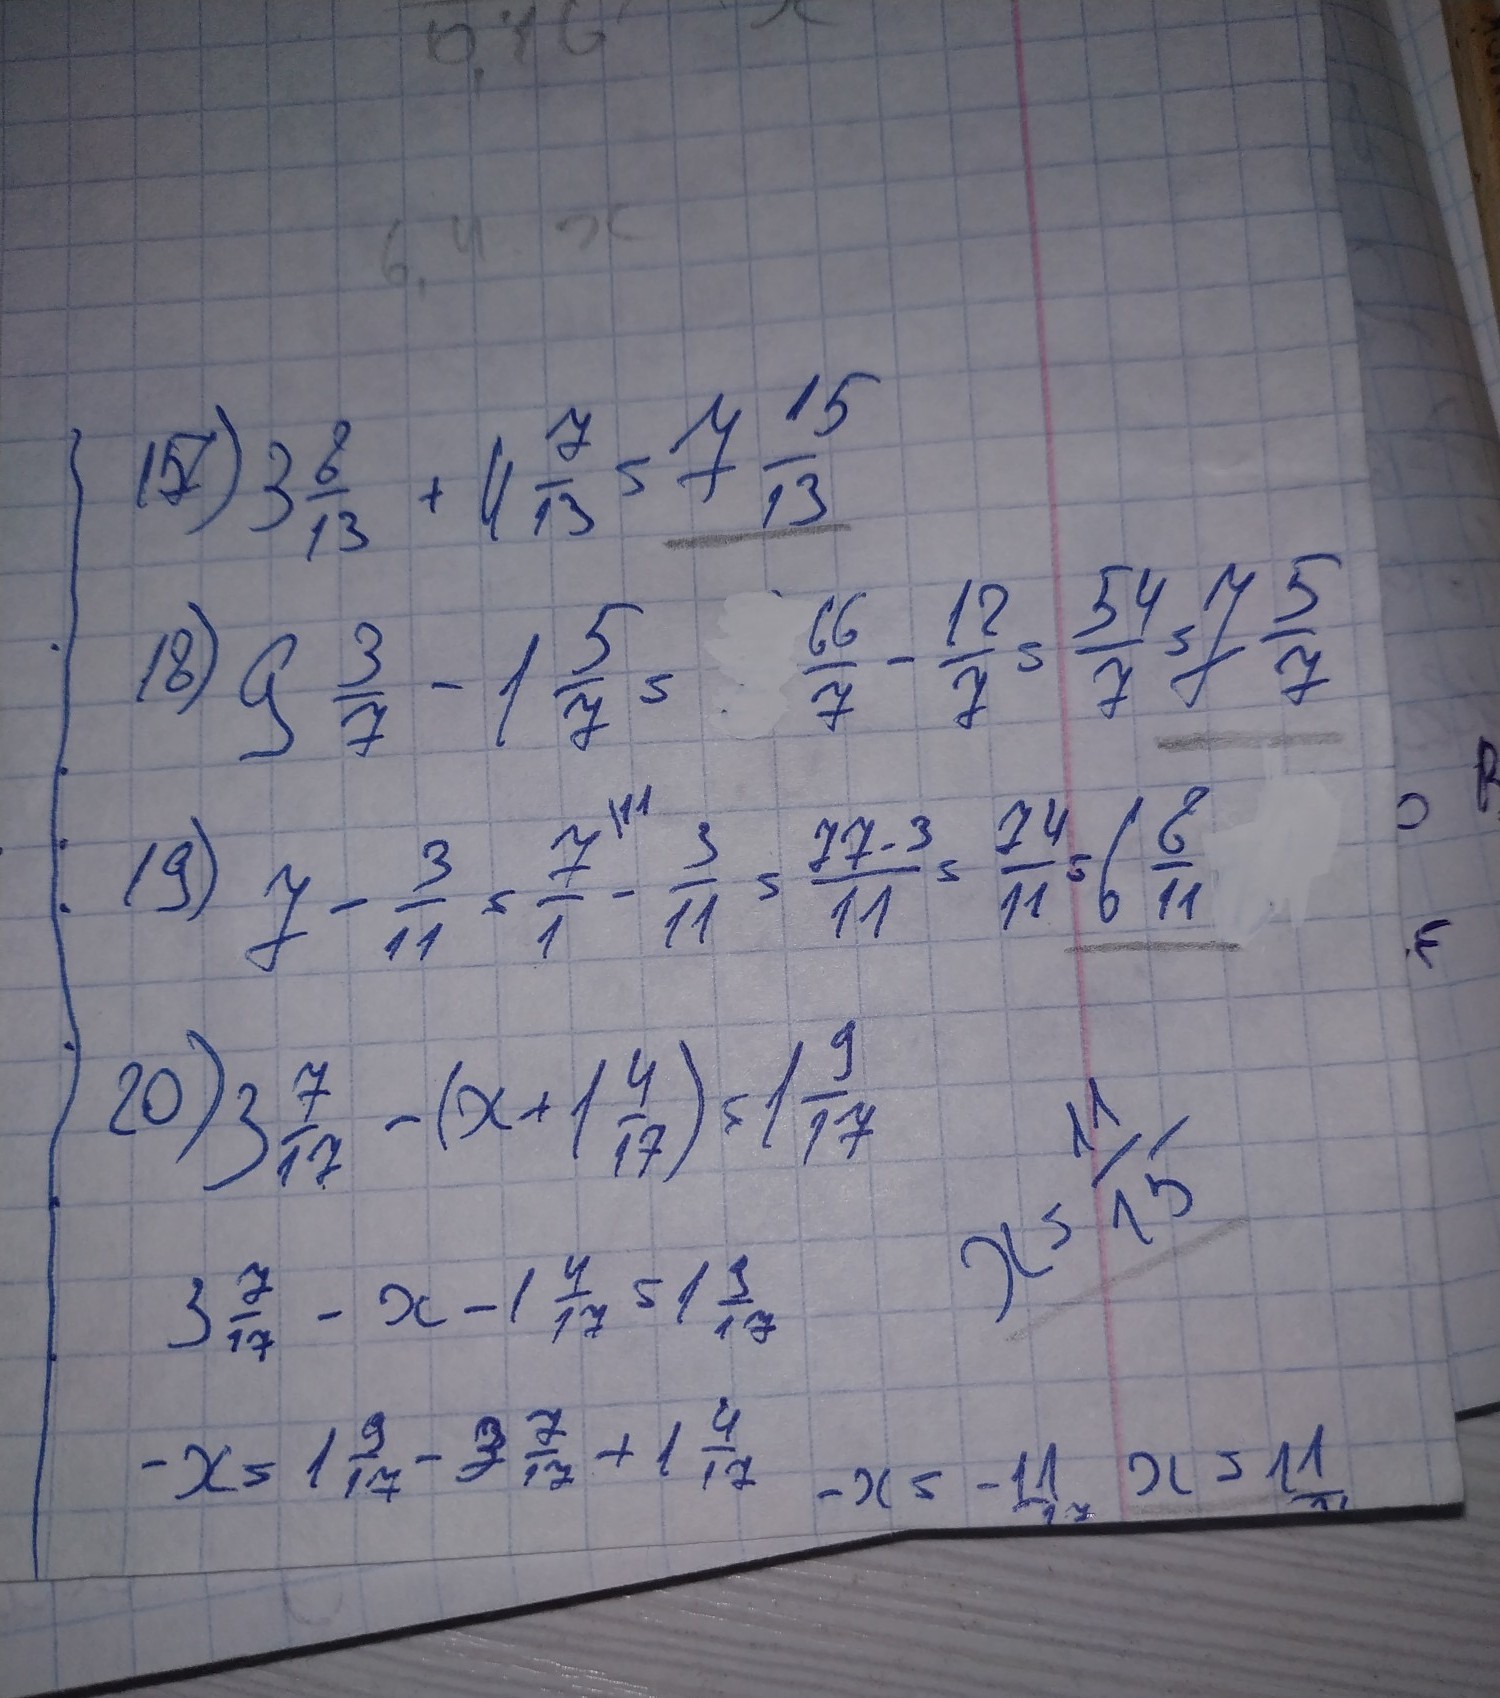 6,4 x
17) 3 8/13 + 4 7/13 = 7 15/13
18) 9 3/7 - 1 5/7 = 66/7 - 12/7 = 54/7 = 7 5/7
19) 7 - 3/11 = 7/1 \11 - 3/11 = 77-3/11 = 74/11 = 6 8/11
20) 3 7/17 - (x + 1 4/17) = 1 9/17
x = 11/15
3 7/17 - x - 1 4/17 = 1 9/17
-x = 1 9/17 - 3 7/17 + 1 4/17 -x = -11/17 x = 11